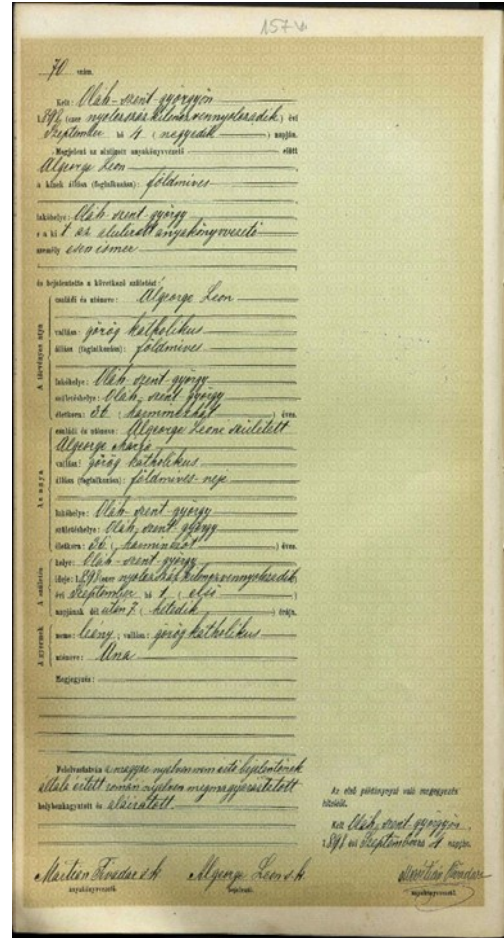 157
70 szám.
Kelt: Oláh-szent-györgyön
1.898 (ezer nyolcszázkilencvennyolcadik) évi
Szeptember hó 4 (negyedik) napján.
Megjelent az alulirt anyakönyvvezető előtt
Algeorge Leon
a kinek állása (foglalkozása): földmives
lakóhelye: Oláh-szent-györgy
s a ki t az alulirott anyakönyvvezető
személyesen ismer
és bejelentette a következő születést:
A törvényes atya
családi és utóneve: Algeorge Leon
vallása: görög katholikus
állása (foglalkozása): földmives
lakóhelye: Oláh-szent-györgy
születéshelye: Oláh-szent-györgy
életkora: 36 (harminczhat) éves.
Az anya
családi és utóneve: Algeorge Leone született
Algeorge
vallása: görög katholikus
állása (foglalkozása): földmives neje
lakóhelye: Oláh-szent-györgy
születéshelye: Oláh-szent-györgy
életkora:
éves.
A születés
helye: Oláh-szent-györgy
ideje: 1.898 (ezer nyolcszázkilencvennyolcadik)
évi Szeptember hó 1 (első)
napjának dél után 7 (hetedik) órája.
A gyermek
neme: leány; vallása: görög katholikus
utóneve: Ana
Megjegyzés:
Felolvastatván a magyar nyelven nem értő bejelentőnek
általa értett román nyelven megmagyaráztatott
helybenhagyatott és aláiratott.
Mártián Tivadar s.k.
anyakönyvvezető.
Algeorge Leon s.k.
bejelentő.
Az első példánynyal való megegyezését
hitelesíti.
Kelt Oláh-szent-györgyön
1.898 évi Szeptember 4 napján.
Mártián Tivadar
anyakönyvvezető.